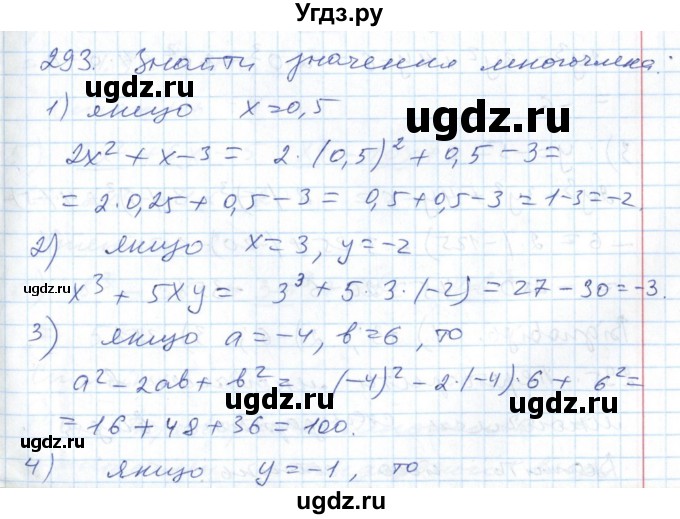 Угдз.ру
293. Знайти значення многочлена:
ugdz.ru
1) якщо x=0,5
ugdz.ru
2x² + x - 3 = 2·(0,5)² + 0,5 - 3 =
= 2·0,25 + 0,5 - 3 = 0,5 + 0,5 - 3 = 1-3 = -2.
ugdz.ru
2) якщо x=3, y=-2
ugdz.ru
x³ + 5xy = 3³ + 5·3·(-2) = 27 - 30 = -3.
ugdz.ru
3) якщо a=-4, b=6, то
a² - 2ab + b² = (-4)² - 2·(-4)·6 + 6² =
ugdz.ru
ugdz.ru
= 16 + 48 + 36 = 100.
ugdz.ru
4) якщо y=-1, то
ugdz.ru
ugdz.ru